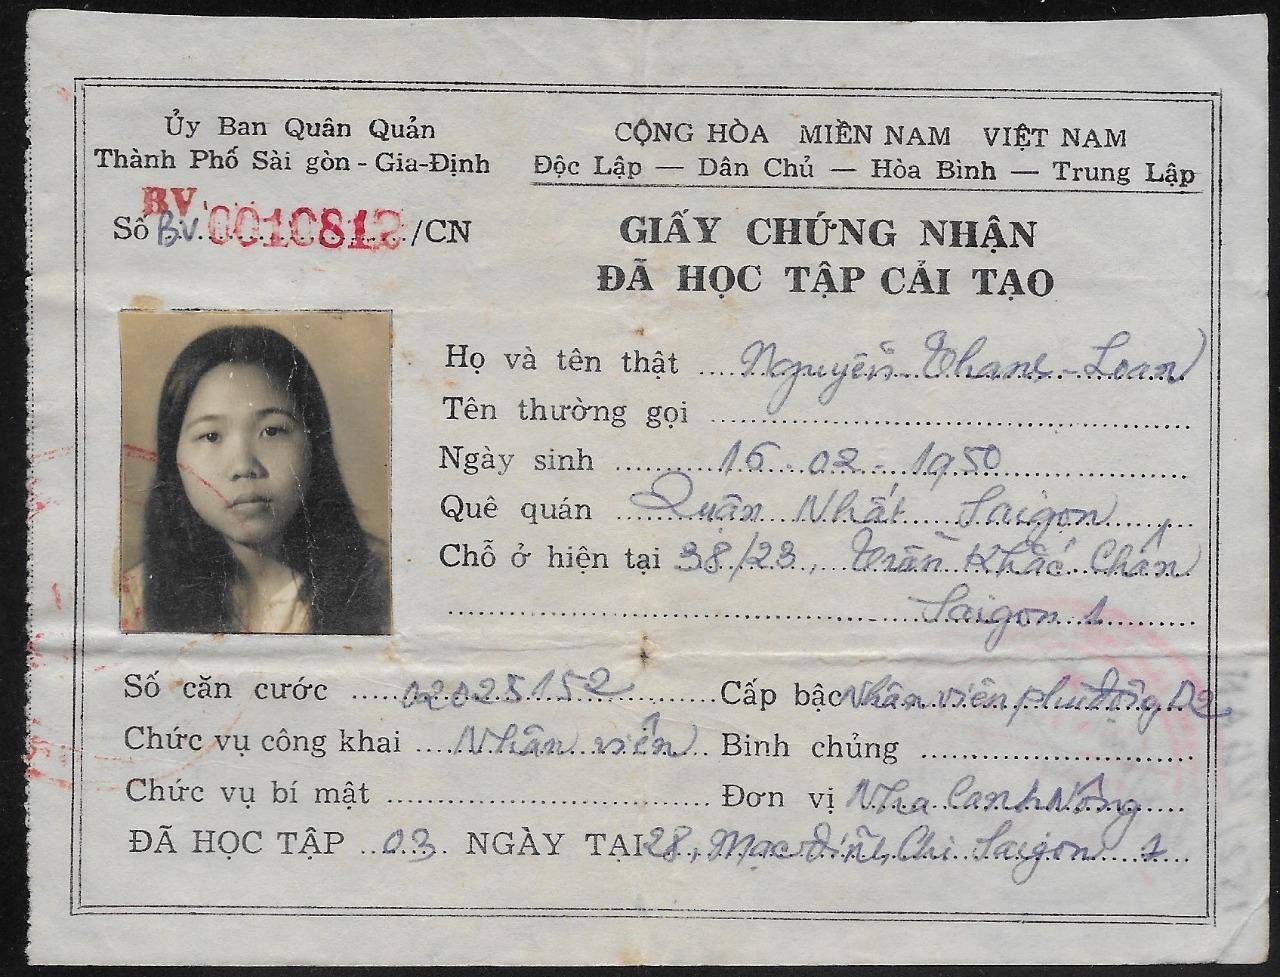 Ủy Ban Quân Quản
Thành Phố Sài gòn - Gia-Định
CỘNG HÒA MIỀN NAM VIỆT NAM
Độc Lập — Dân Chủ — Hòa Bình — Trung Lập
BV
Số BV. 0010812 /CN
GIẤY CHỨNG NHẬN
ĐÃ HỌC TẬP CẢI TẠO
Họ và tên thật Nguyễn Thanh-Loan
Tên thường gọi
Ngày sinh 16-02-1950
Quê quán Quận Nhất Saigon
Chỗ ở hiện tại 38/23, Trần Khắc Chân
Saigon 1
Số căn cước 02025152
Cấp bậc Nhân viên phù động D2
Chức vụ công khai Nhân viên
Binh chủng
Chức vụ bí mật
Đơn vị Nha Canh Nông
ĐÃ HỌC TẬP 03 NGÀY TẠI 28, Mạc Đĩnh Chi Saigon 1